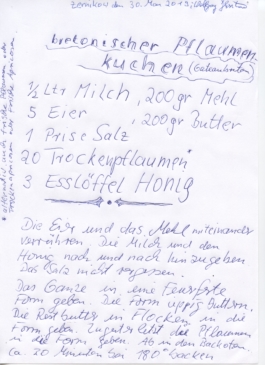 Zernikow den 30. Mai 2013, Wolfgang
bretonischer Pflaumen-
kuchen
1/2 Ltr Milch, 200 gr Mehl
5 Eier, 200 gr Butter
1 Prise Salz
20 Trockenpflaumen*
3 Esslöffel Honig
* alternativ auch frische Pflaumen oder
Trockenaprikosen oder frische Aprikosen
Die Eier und das Mehl miteinander
verrühren. Die Milch und den
Honig nach und nach hinzugeben
Das Salz nicht vergessen.
Das Ganze in eine feuerfeste
Form geben. Die Form üppig buttern.
Die Restbutter in Flocken in die
Form geben. Zuguterletzt die Pflaumen
in die Form geben. Ab in den Backofen
Ca. 30 Minuten bei 180° backen